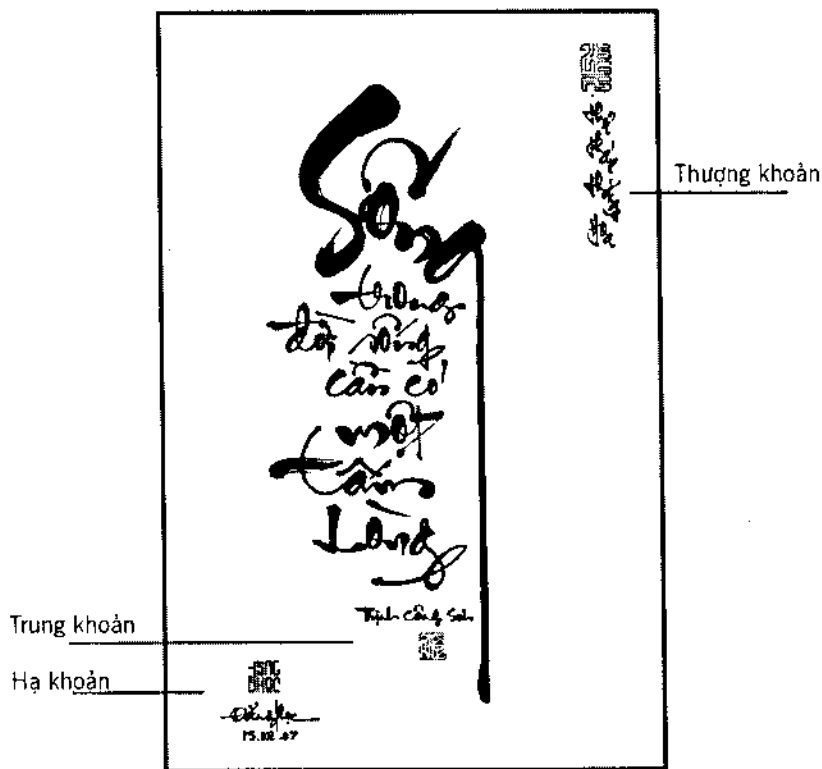 Thượng khoản
Sống
trong
đời sống
cần có
một
tấm
Lòng
Trịnh Công Sơn
Trung khoản
Hạ khoản
15.02.07